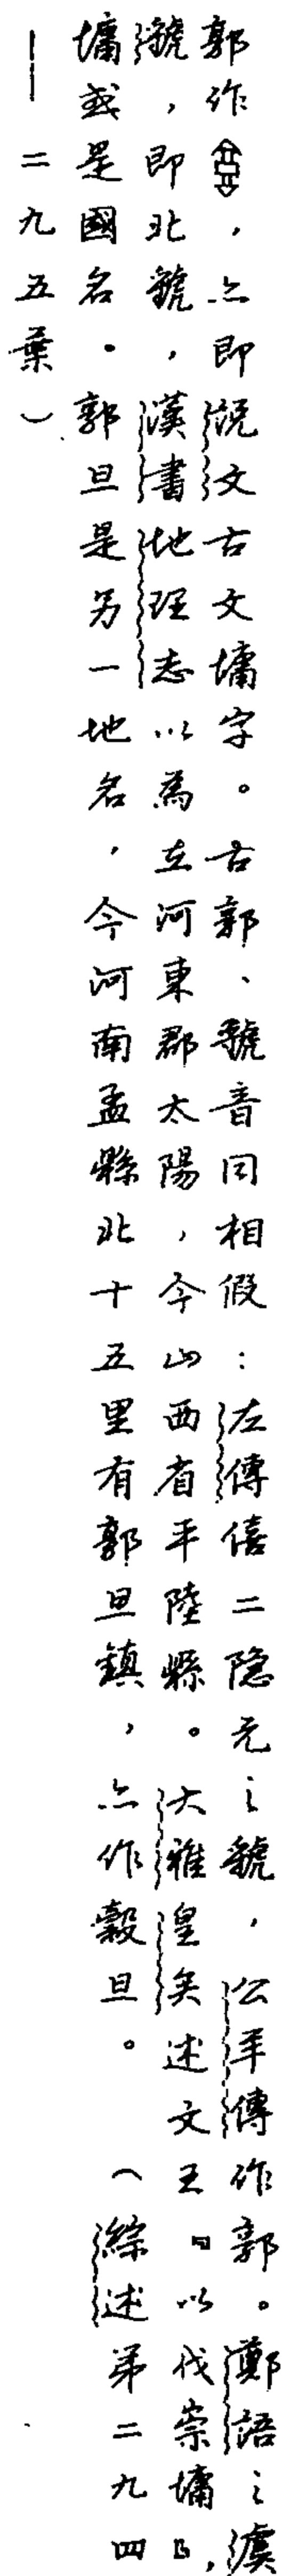 郭作，亦即說文古文墉字。古郭、虢音同相假：左傳僖二隱元之虢，公羊傳作郭。鄭語之虞
虢，即北虢，漢書地理志以為在河東郡太陽，今山西省平陸縣。大雅皇矣述文王「以伐崇墉」，
墉或是國名。郭旦是另一地名，今河南孟縣北十五里有郭旦鎮，亦作穀旦。（綜述第二九四
——二九五葉）